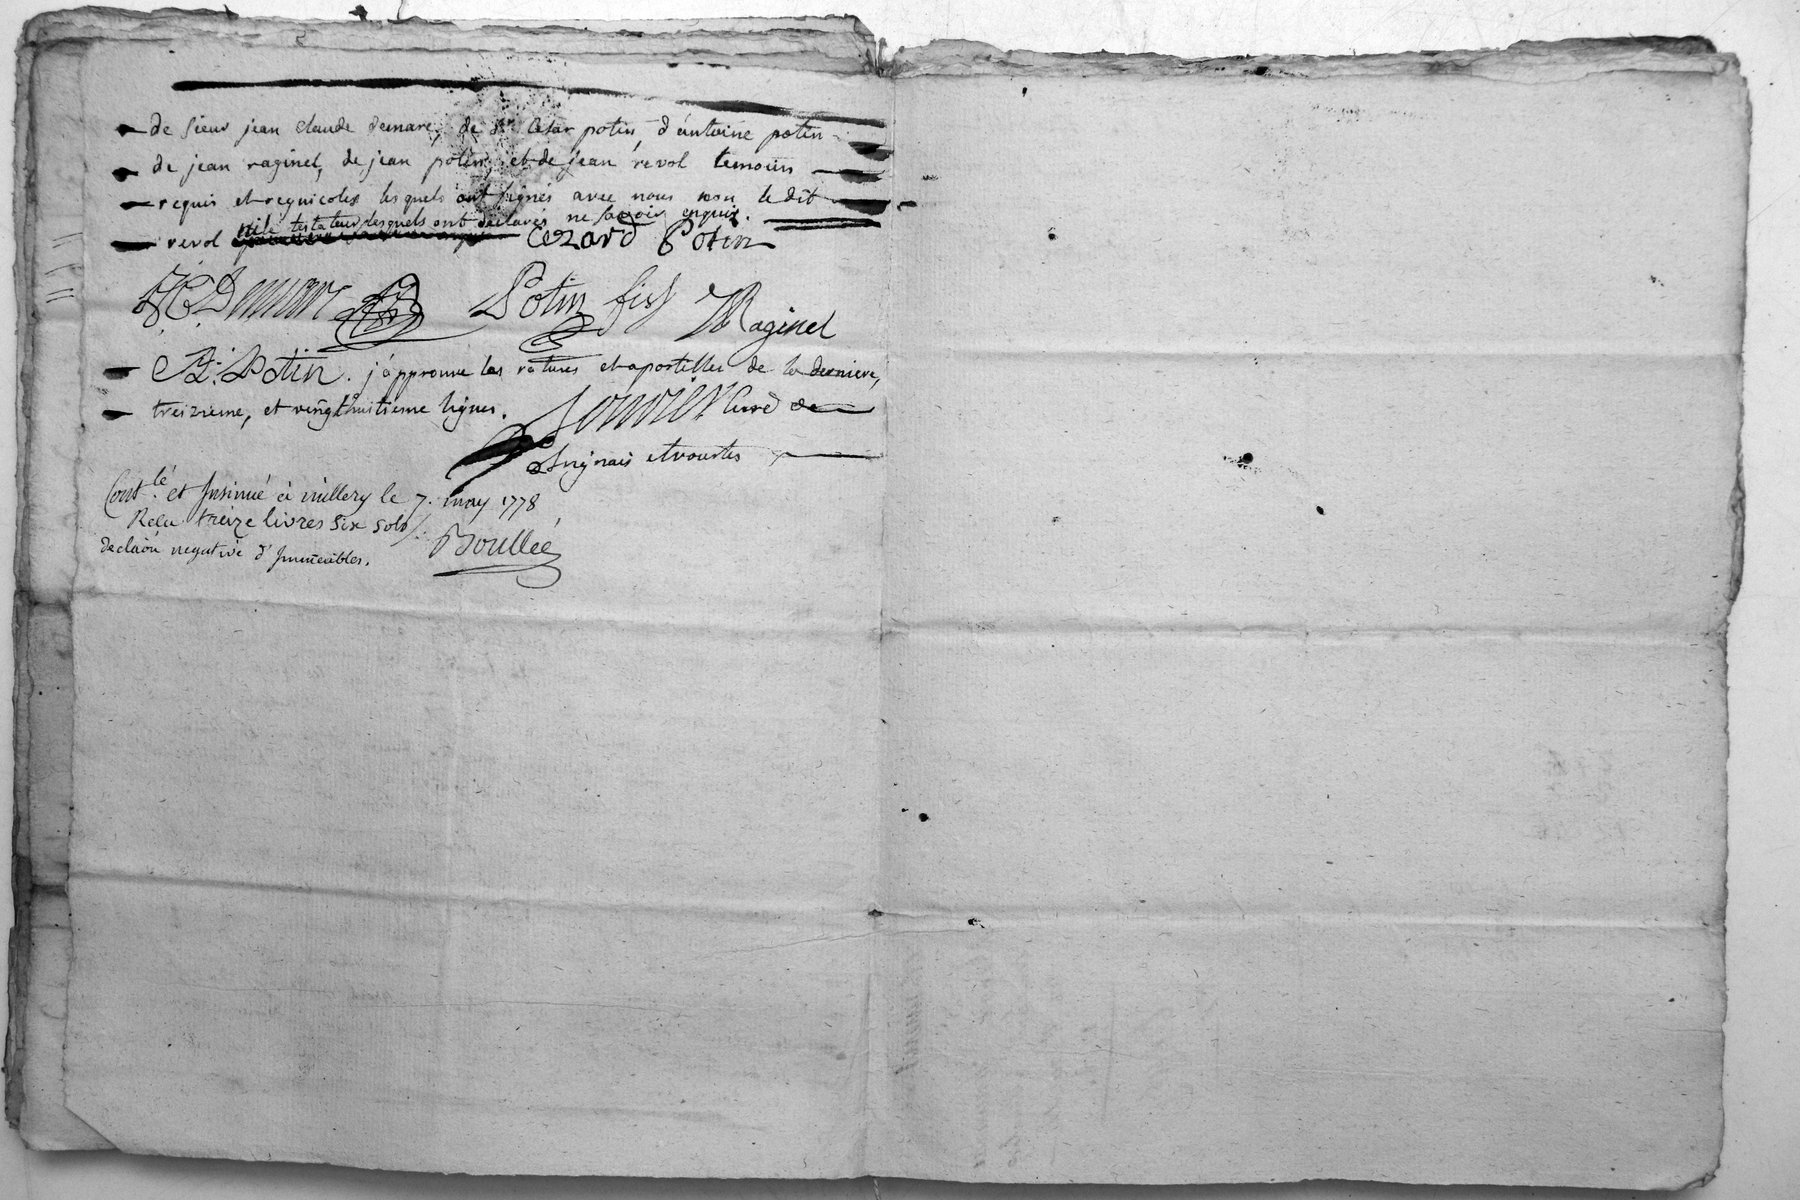 de sieur jean claude demare, de sr. Cesar potin, d'antoine potin
de jean raginel, de jean potin, et de jean revol temoins
requis et regnicoles lesquels ont signés avec nous non le dit
ni le testateur lesquels ont declarés ne savoir enquis.
revol Cezard Potin
JC Demare Potin fis JRaginel
At. Potin. j'approuve les ratures et apostilles de la derniere,
treizieme, et vingt huitieme lignes. Jouvier Curé de
Chignais et vourles
Contlé. et Insinué à millery le 7. may 1778
Reçu treize livres six sols
declaôn negative d'Immeubles. Boullée